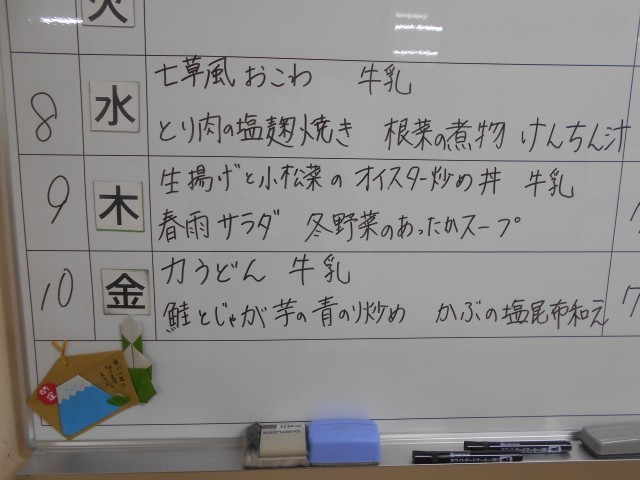 火
8 水 七草風おこわ 牛乳
とり肉の塩麹焼き 根菜の煮物 けんちん汁
9 木 生揚げと小松菜のオイスター炒め丼 牛乳
春雨サラダ 冬野菜のあったかスープ
10 金 力うどん 牛乳
鮭とじゃが芋の青のり炒め かぶの塩昆布和え